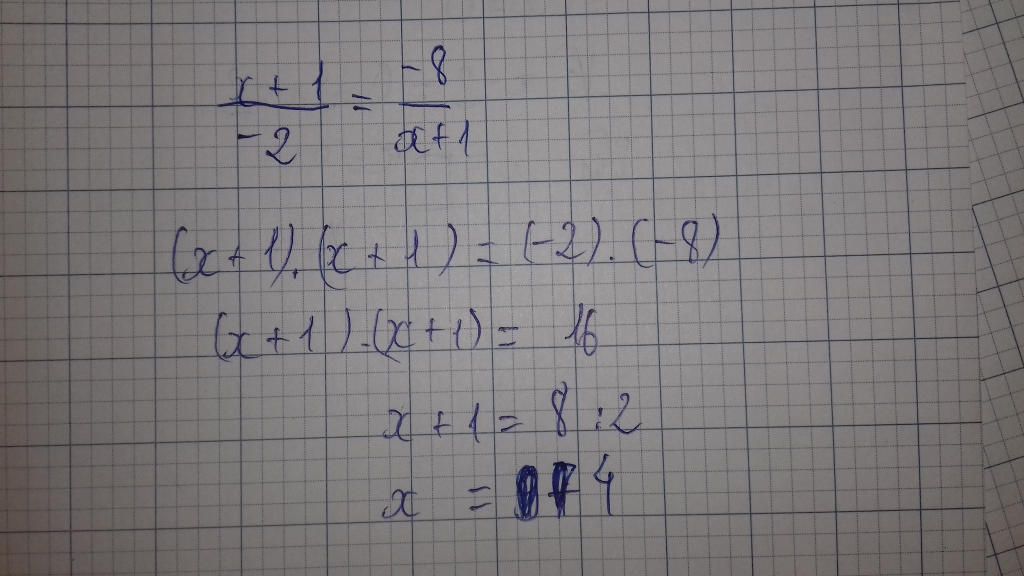 x + 1 / -2 = -8 / x+1
(x + 1).(x + 1) = (-2).(-8)
(x + 1).(x+1) = 16
x + 1 = 8 :2
x = 4